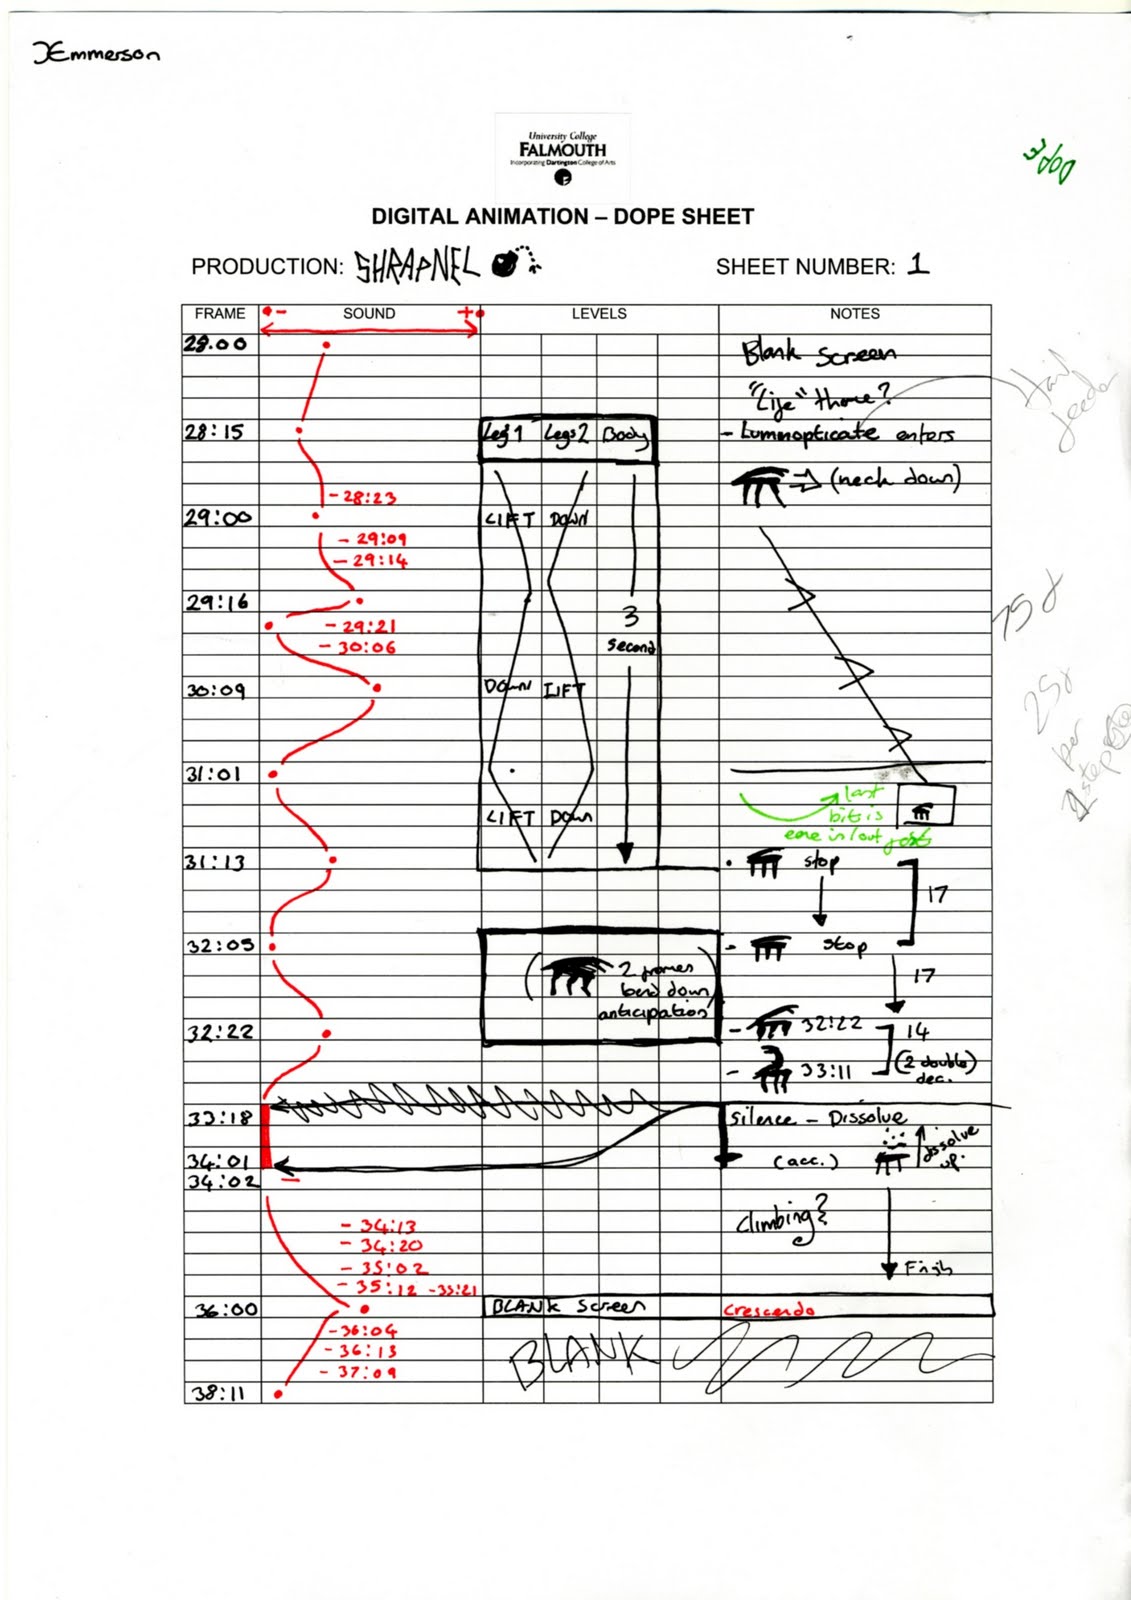 JEmmerson
University College
FALMOUTH
Incorporating Dartington College of Arts
DOPE
DIGITAL ANIMATION – DOPE SHEET
PRODUCTION: SHRAPNEL
SHEET NUMBER: 1
FRAME - SOUND + LEVELS NOTES
28.00
Blank Screen
"Life" theme?
28:15 Leg 1 Legs 2 Body - Luminopticate enters
(neck down)
- 28:23
29:00 LIFT DOWN
- 29:09
- 29:14
29:16
- 29:21 3
- 30:06 second
30:09 DOWN LIFT
31:01
last
bit is
ease in/out
LIFT DOWN
31:13 stop
17
32:05 - stop
2 frames
bend down
anticipation
17
32:22 - 32:22 14
- 33:11 (2 double)
dec.
33:18 Silence - Dissolve
34:01 (acc.) dissolve
up.
34:02 -
- 34:13 Climbing?
- 34:20
- 35:02 Finish
- 35:12 - 35:21
36:00 BLANK Screen Crescendo
- 36:04
- 36:13 BLANK
- 37:09
38:11
75
25
per
step